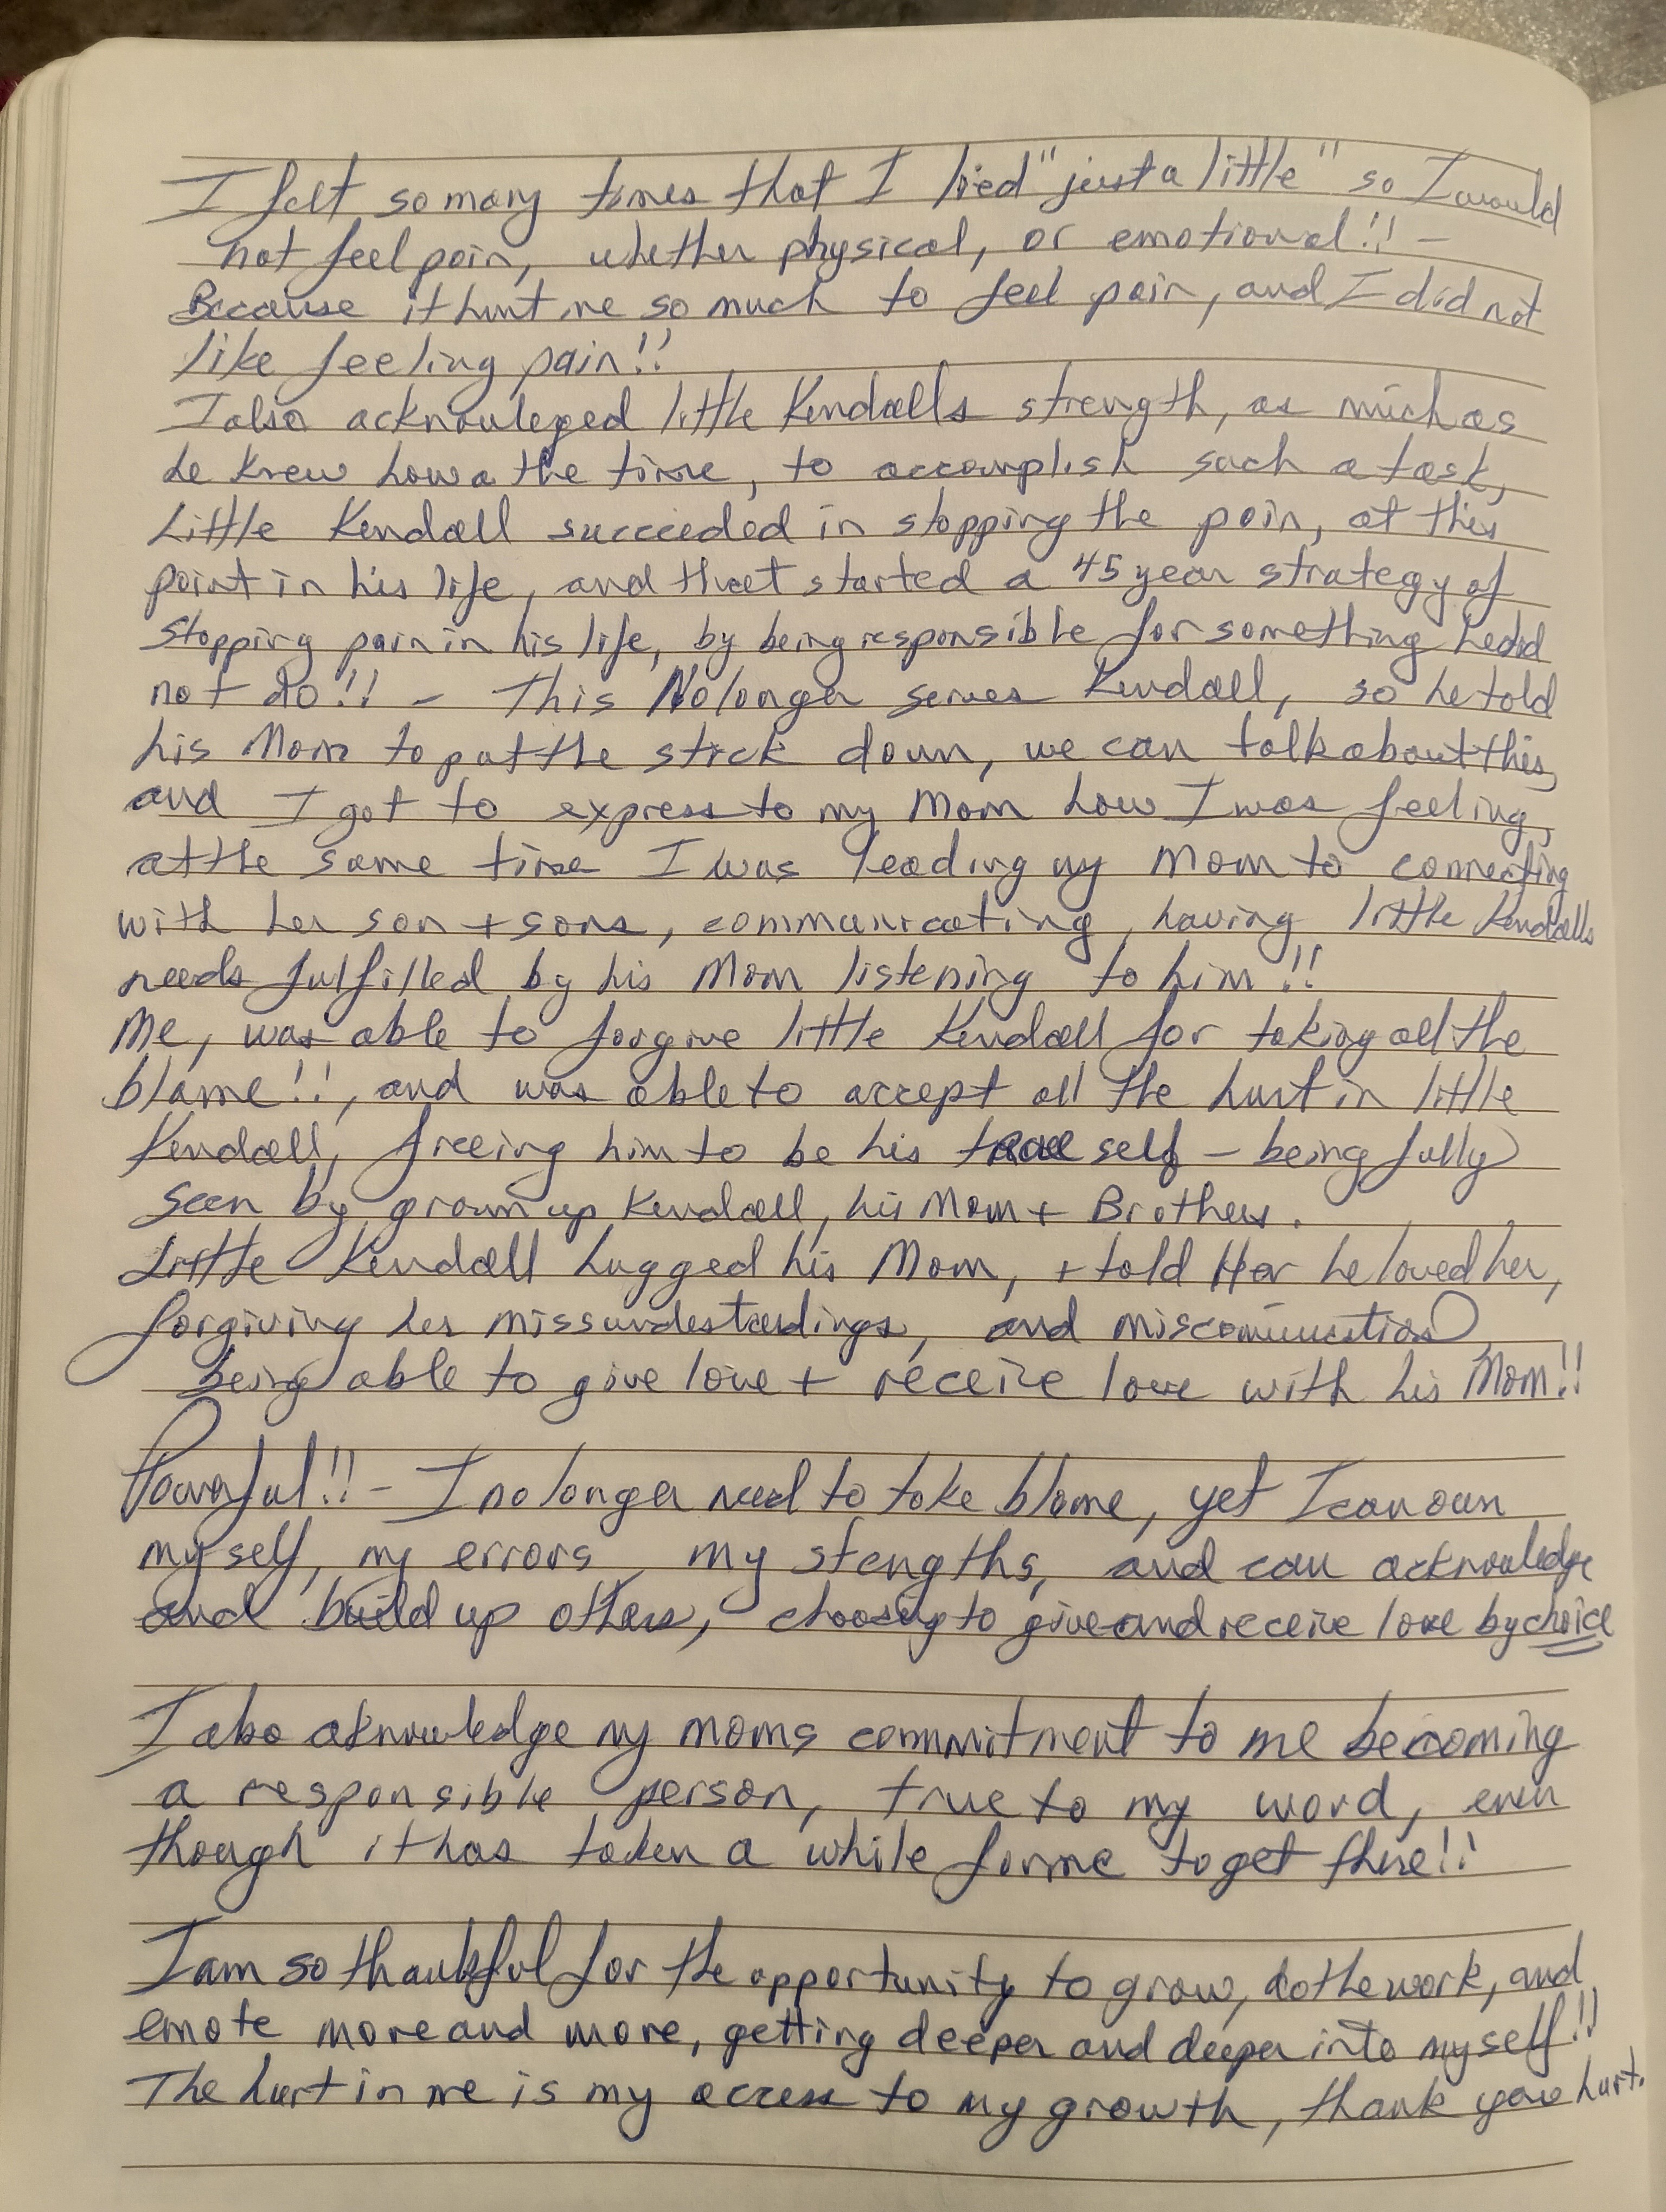 I felt so many times that I lied "just a little" so I would
not feel pain, whether physical, or emotional!! -
Because it hurt me so much to feel pain, and I did not
like feeling pain!!
I also acknowleged little Kendalls strength, as much as
he knew how a the time, to accomplish such a task,
Little Kendall succeeded in stopping the pain, at this
point in his life, and that started a 45 year strategy of
stopping pain in his life, by being responsible for something he did
not do!! - This No longer serves Kendall, so he told
his Mom to put the stick down, we can talk about this,
and I got to express to my Mom how I was feeling,
at the same time I was leading my Mom to connecting
with her son + sons, communicating, having little Kendalls
needs fulfilled by his Mom listening to him!!
Me, was able to forgive little Kendall for taking all the
blame!!, and was able to accept all the hurt in little
Kendall, freeing him to be his true self - being fully
seen by grown up Kendall, his Mom + Brothers.
Little Kendall hugged his Mom, + told Her he loved her,
forgiving her missunderstandings, and miscommunication
being able to give love + receive love with his Mom!!
Powerful!! - I no longer need to take blame, yet I can own
myself, my errors, my stengths, and can acknowledge
and build up others, choosing to give and receive love by choice
I also aknowledge my moms commitment to me becoming
a responsible person, true to my word, even
though it has taken a while for me to get there!!
I am so thankful for the opportunity to grow, do the work, and
emote more and more, getting deeper and deeper into myself!!
The hurt in me is my access to my growth, thank you hurt.